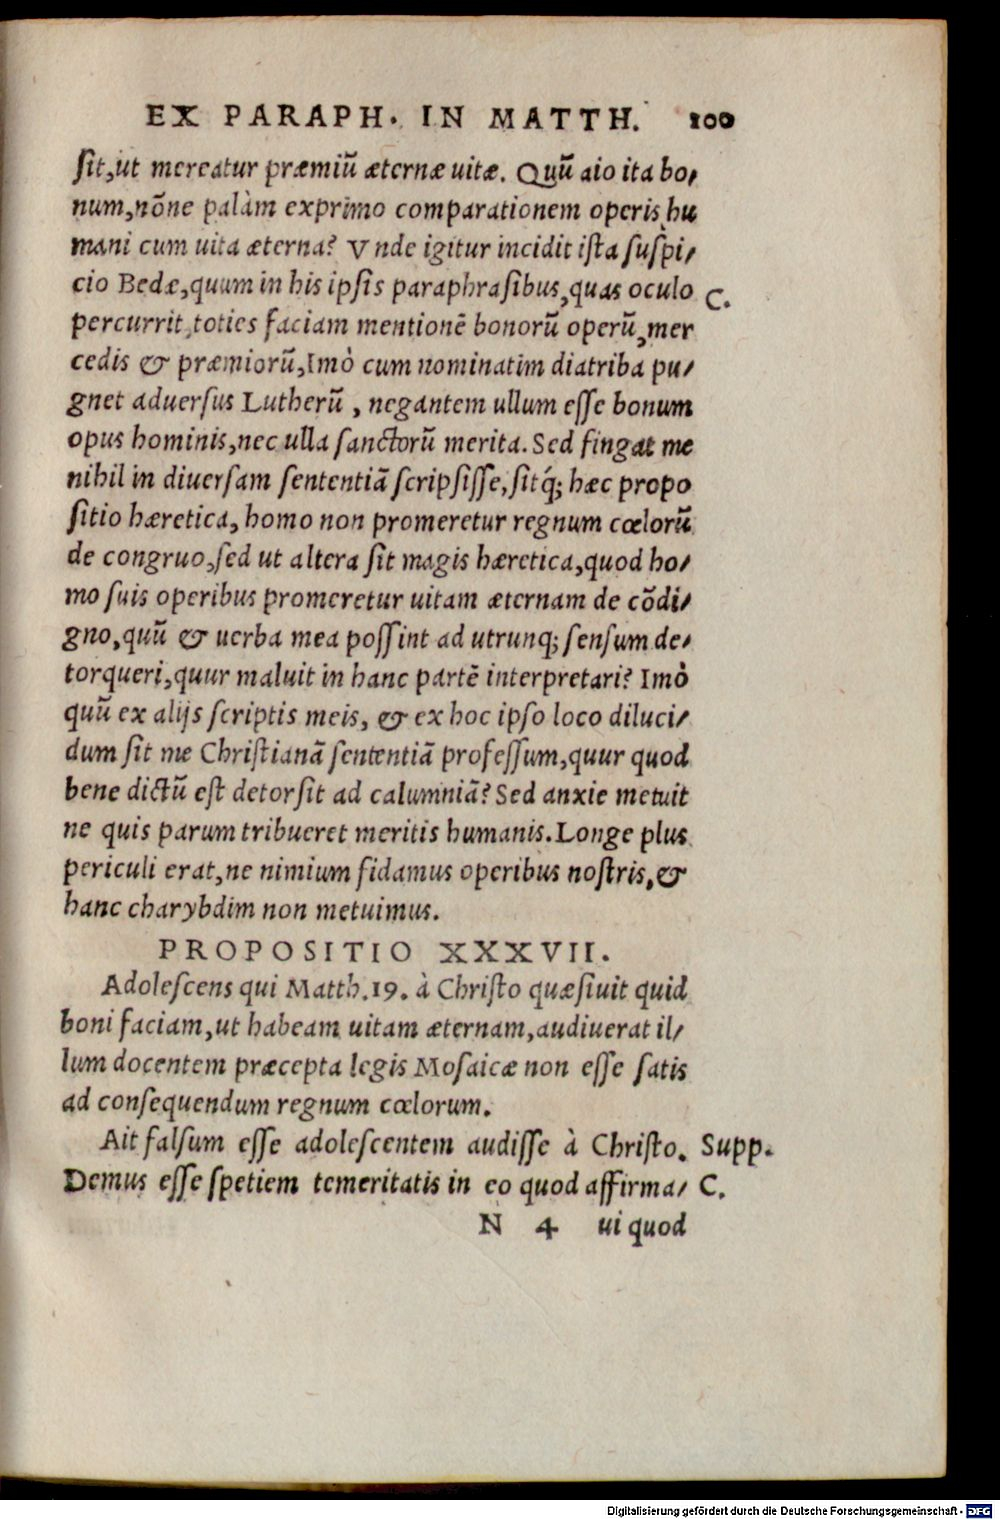 EX PARAPH. IN MATTH. 100
sit, ut mereatur præmiū æternæ uitæ. Quū aio ita bo-
num, nōne palàm exprimo comparationem operis hu
mani cum uita æterna? Vnde igitur incidit ista suspi-
cio Bedæ, quum in his ipsis paraphrasibus, quas oculo C.
percurrit, toties faciam mentionē bonorū operū, mer
cedis & præmiorū, Imò cum nominatim diatriba pu-
gnet aduersus Lutherū, negantem ullum esse bonum
opus hominis, nec ulla sanctorū merita. Sed fingat me
nihil in diuersam sententiā scripsisse, sitq́; hæc propo
sitio hæretica, homo non promeretur regnum cœlorū
de congruo, sed ut altera sit magis hæretica, quod ho-
mo suis operibus promeretur uitam æternam de cōdi-
gno, quū & uerba mea possint ad utrunq; sensum de-
torqueri, quur maluit in hanc partē interpretari? Imò
quū ex alijs scriptis meis, & ex hoc ipso loco diluci-
dum sit me Christianā sententiā professum, quur quod
bene dictū est detorsit ad calumniā? Sed anxie metuit
ne quis parum tribueret meritis humanis. Longe plus
periculi erat, ne nimium fidamus operibus nostris, &
hanc charybdim non metuimus.
PROPOSITIO XXXVII.
Adolescens qui Matth. 19. à Christo quæsiuit quid
boni faciam, ut habeam uitam æternam, audiuerat il-
lum docentem præcepta legis Mosaicæ non esse satis
ad consequendum regnum cœlorum.
Ait falsum esse adolescentem audisse à Christo. Supp.
Demus esse spetiem temeritatis in eo quod affirma- C.
N 4 ui quod
Digitalisierung gefördert durch die Deutsche Forschungsgemeinschaft - DFG